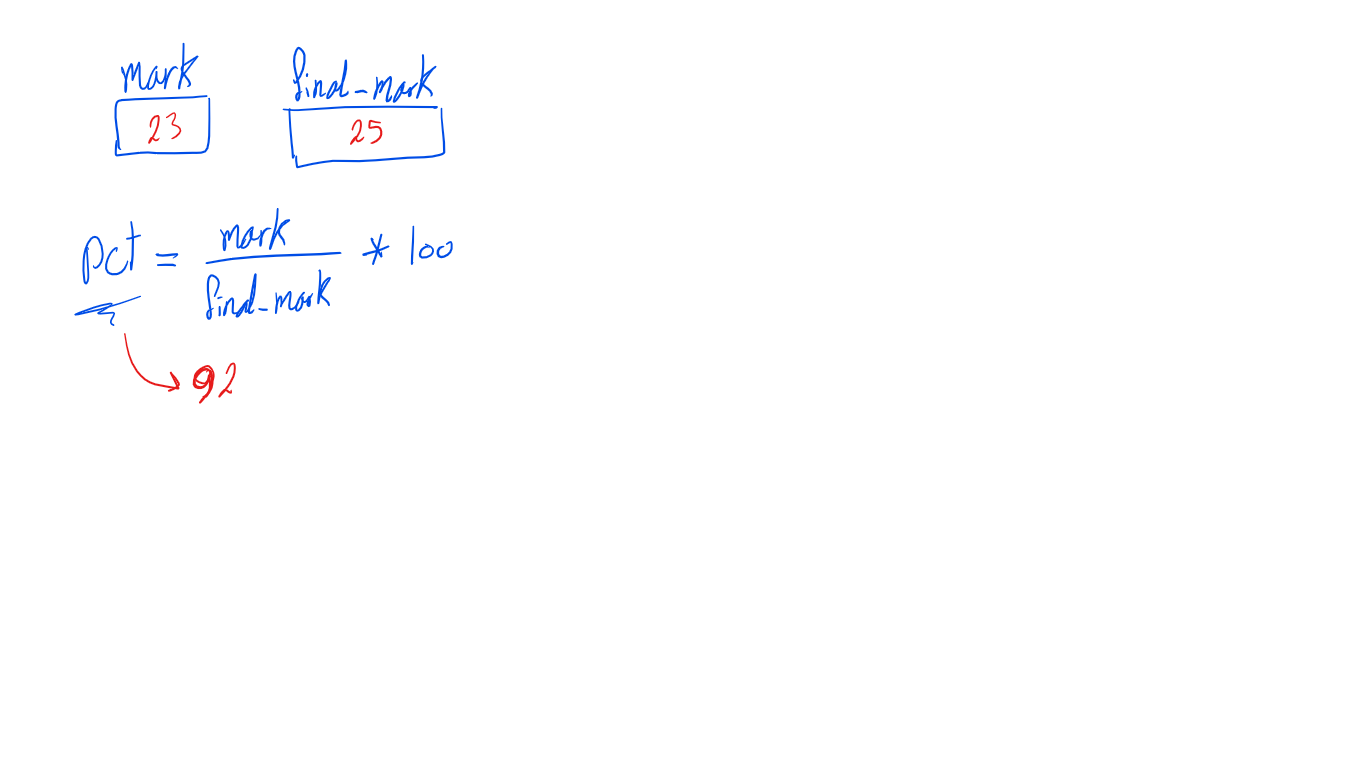 mark final_mark
23 25
pct = mark / final_mark * 100
92